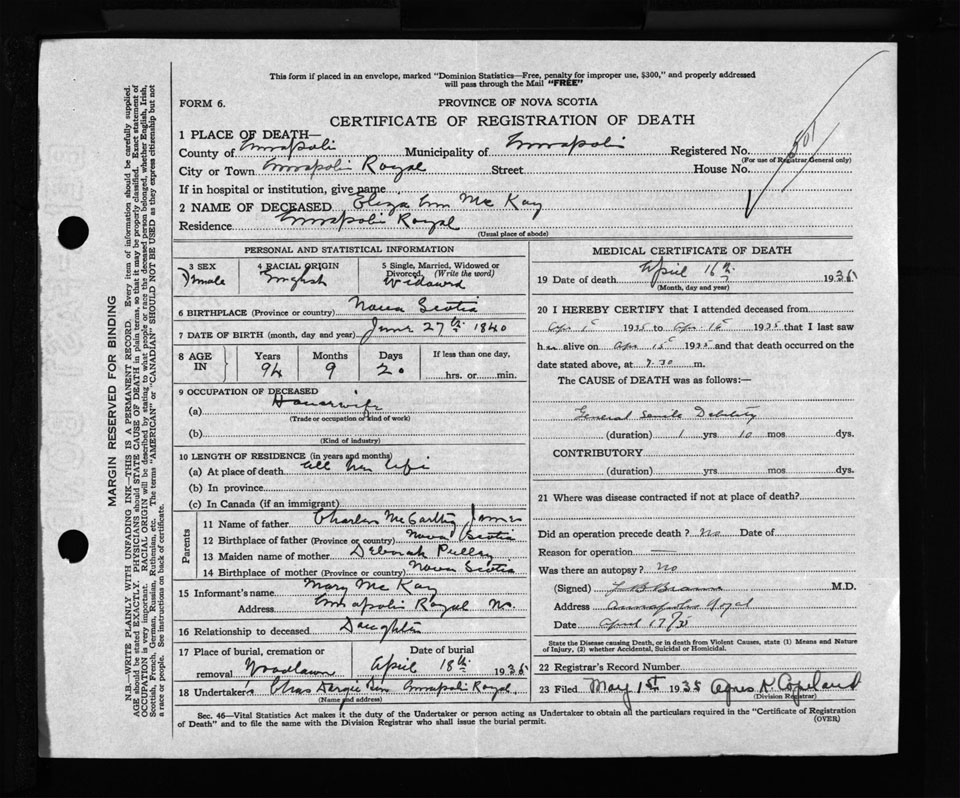 This form if placed in an envelope, marked "Dominion Statistics—Free, penalty for improper use, $300," and properly addressed
will pass through the Mail "FREE"
FORM 6.
PROVINCE OF NOVA SCOTIA
CERTIFICATE OF REGISTRATION OF DEATH
1 PLACE OF DEATH—
County of Annapolis Municipality of Annapolis Registered No.
(For use of Registrar General only)
City or Town Annapolis Royal Street House No.
If in hospital or institution, give name
2 NAME OF DECEASED Eliza Ann Mc Kay
Residence Annapolis Royal
(Usual place of abode)
PERSONAL AND STATISTICAL INFORMATION
3 SEX 4 RACIAL ORIGIN 5 Single, Married, Widowed or
Divorced (Write the word)
Female English Widowed
6 BIRTHPLACE (Province or country) Nova Scotia
7 DATE OF BIRTH (month, day and year) June 27th 1840
8 AGE IN Years Months Days If less than one day,
94 9 20 hrs. or min.
9 OCCUPATION OF DECEASED
(a) Housewife
(Trade or occupation or kind of work)
(b)
(Kind of industry)
10 LENGTH OF RESIDENCE (in years and months)
(a) At place of death All her life
(b) In province
(c) In Canada (if an immigrant)
Parents
11 Name of father Charles McCarthy James
12 Birthplace of father (Province or country) Nova Scotia
13 Maiden name of mother Deborah
14 Birthplace of mother (Province or country) Nova Scotia
15 Informant's name Mary Mc Kay
Address Annapolis Royal
16 Relationship to deceased Daughter
17 Place of burial, cremation or Date of burial
removal Woodlawn April 18th 1935
18 Undertaker's Chas Annapolis Royal
(Name and address)
MEDICAL CERTIFICATE OF DEATH
19 Date of death April 16th 1935
(Month, day and year)
20 I HEREBY CERTIFY that I attended deceased from
Apr 1st 1935 to Apr 16th 1935 that I last saw
her alive on Apr 15th 1935 and that death occurred on the
date stated above, at 7.30 m.
The CAUSE of DEATH was as follows:—
General Senile Debility
(duration) 1 yrs 10 mos dys.
CONTRIBUTORY
(duration) yrs mos dys.
21 Where was disease contracted if not at place of death?
Did an operation precede death? No Date of
Reason for operation —
Was there an autopsy? No
(Signed) M.D.
Address Annapolis Royal
Date April 17/35
State the Disease causing Death, or in death from Violent Causes, state (1) Means and Nature
of Injury, (2) whether Accidental, Suicidal or Homicidal.
22 Registrar's Record Number
23 Filed May 1st 1935 Agnes K Copeland
(Division Registrar)
Sec. 46—Vital Statistics Act makes it the duty of the Undertaker or person acting as Undertaker to obtain all the particulars required in the "Certificate of Registration
of Death" and to file the same with the Division Registrar who shall issue the burial permit.
(OVER)
MARGIN RESERVED FOR BINDING
N.B.—WRITE PLAINLY WITH UNFADING INK—THIS IS A PERMANENT RECORD. Every item of information should be carefully supplied.
AGE should be stated EXACTLY. PHYSICIANS should STATE CAUSE OF DEATH in plain terms, so that it may be properly classified. Exact statement of
OCCUPATION is very important. RACIAL ORIGIN will be described by stating to what people or race the deceased person belonged, whether English, Irish,
Scottish, French, German, Russian, Ruthenian, etc. The terms "AMERICAN" or "CANADIAN" SHOULD NOT BE USED as they express citizenship but not
a race or people. See instructions on back of certificate.